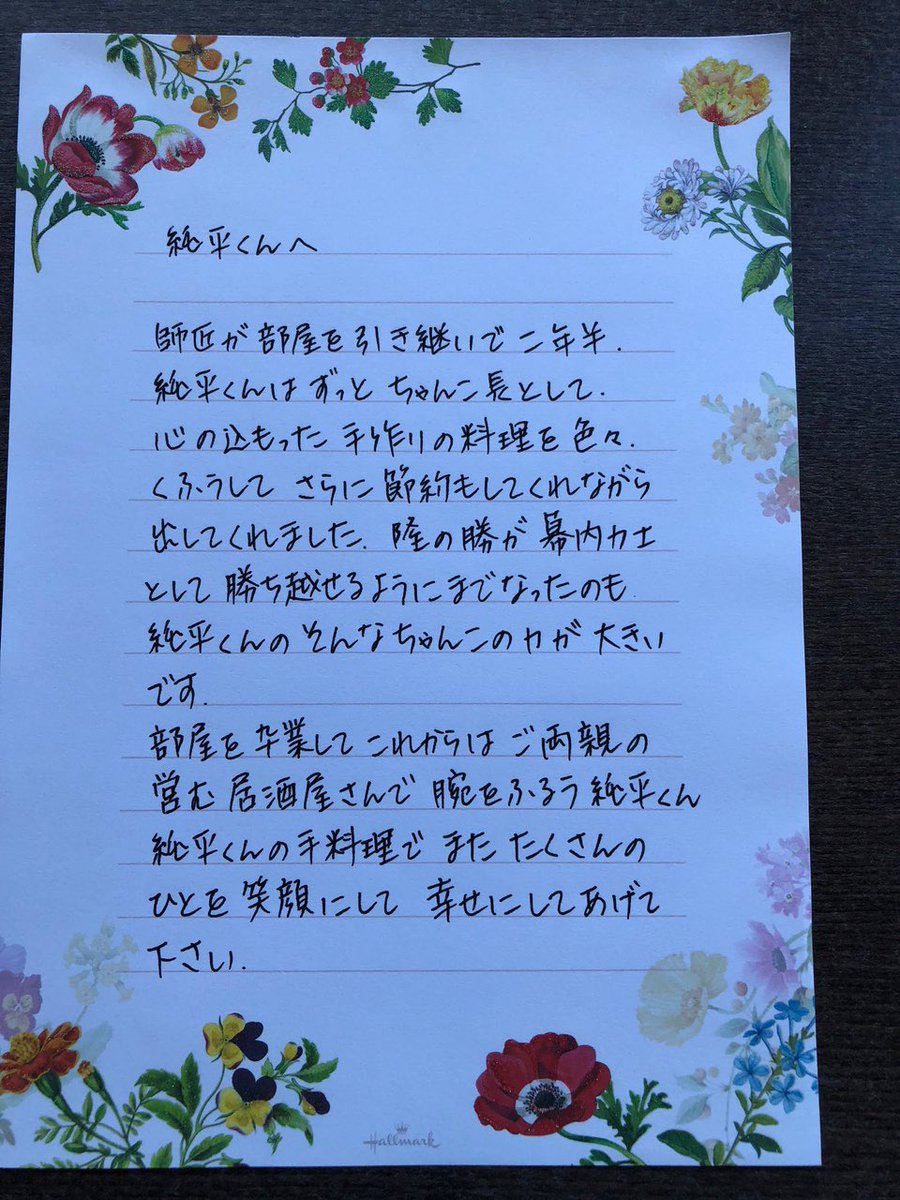 純平くんへ
師匠が部屋を引き継いで二年半.
純平くんはずっと ちゃんこ長として.
心の込もった 手作りの料理を色々.
くふうして さらに節約もしてくれながら
出してくれました. 隆の勝が 幕内力士
として 勝ち越せるようにまでなったのも
純平くんの そんなちゃんこの力が 大きい
です.
部屋を 卒業して これからは ご両親の
営む 居酒屋さんで 腕をふるう 純平くん
純平くんの手料理で また たくさんの
ひとを 笑顔にして 幸せにしてあげて
下さい.
Hallmark